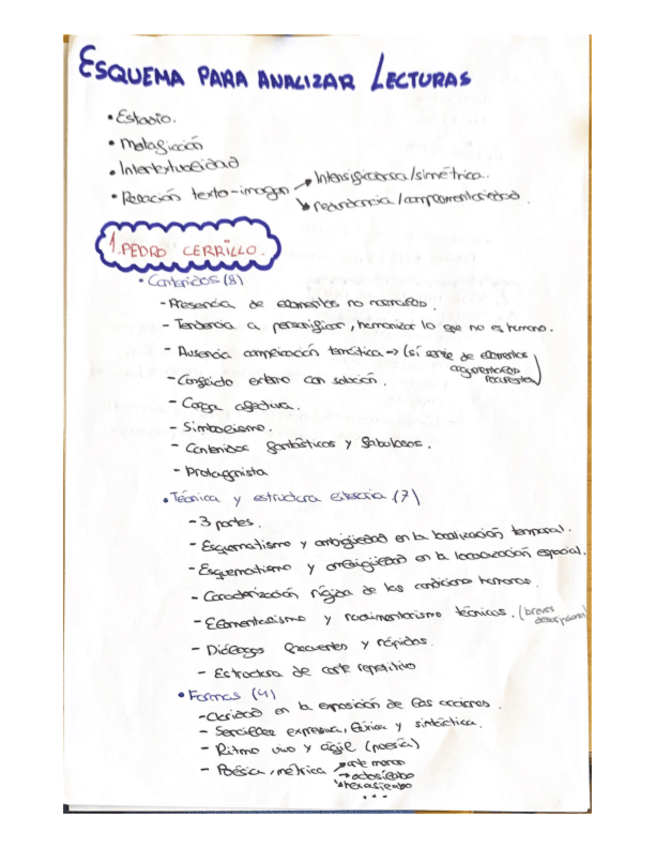 ESQUEMA PARA ANALIZAR LECTURAS
• Estadio.
• Metaficción
• Intertextualidad
• Relación texto-imagen → Intensificadora/simétrica.
↘ redundancia/complementariedad.
1. PEDRO CERRILLO.
• Contenidos (8)
- Presencia de elementos no narrados.
- Tendencia a personificar, humanizar lo que no es humano.
- Ausencia complicación temática → (sí serie de elementos
argumentales
recurrentes)
- Conflicto externo con solución.
- Carga afectiva.
- Simbolismo.
- Contenidos fantásticos y fabulosos.
- Protagonista
• Técnica y estructura literaria (7)
- 3 partes.
- Esquematismo y ambigüedad en la localización temporal.
- Esquematismo y ambigüedad en la localización espacial.
- Caracterización rígida de las condiciones humanas.
- Elementalismo y rudimentarismo técnicos. (breves
descripciones)
- Diálogos frecuentes y rápidos.
- Estructura de corte repetitivo
• Formas (4)
- Claridad en la exposición de las acciones.
- Sencillez expresiva, léxica y sintáctica.
- Ritmo vivo y ágil (poesía)
- Poésica, métrica → arte menor
→ octosílabo
↘ hexasílabo
...